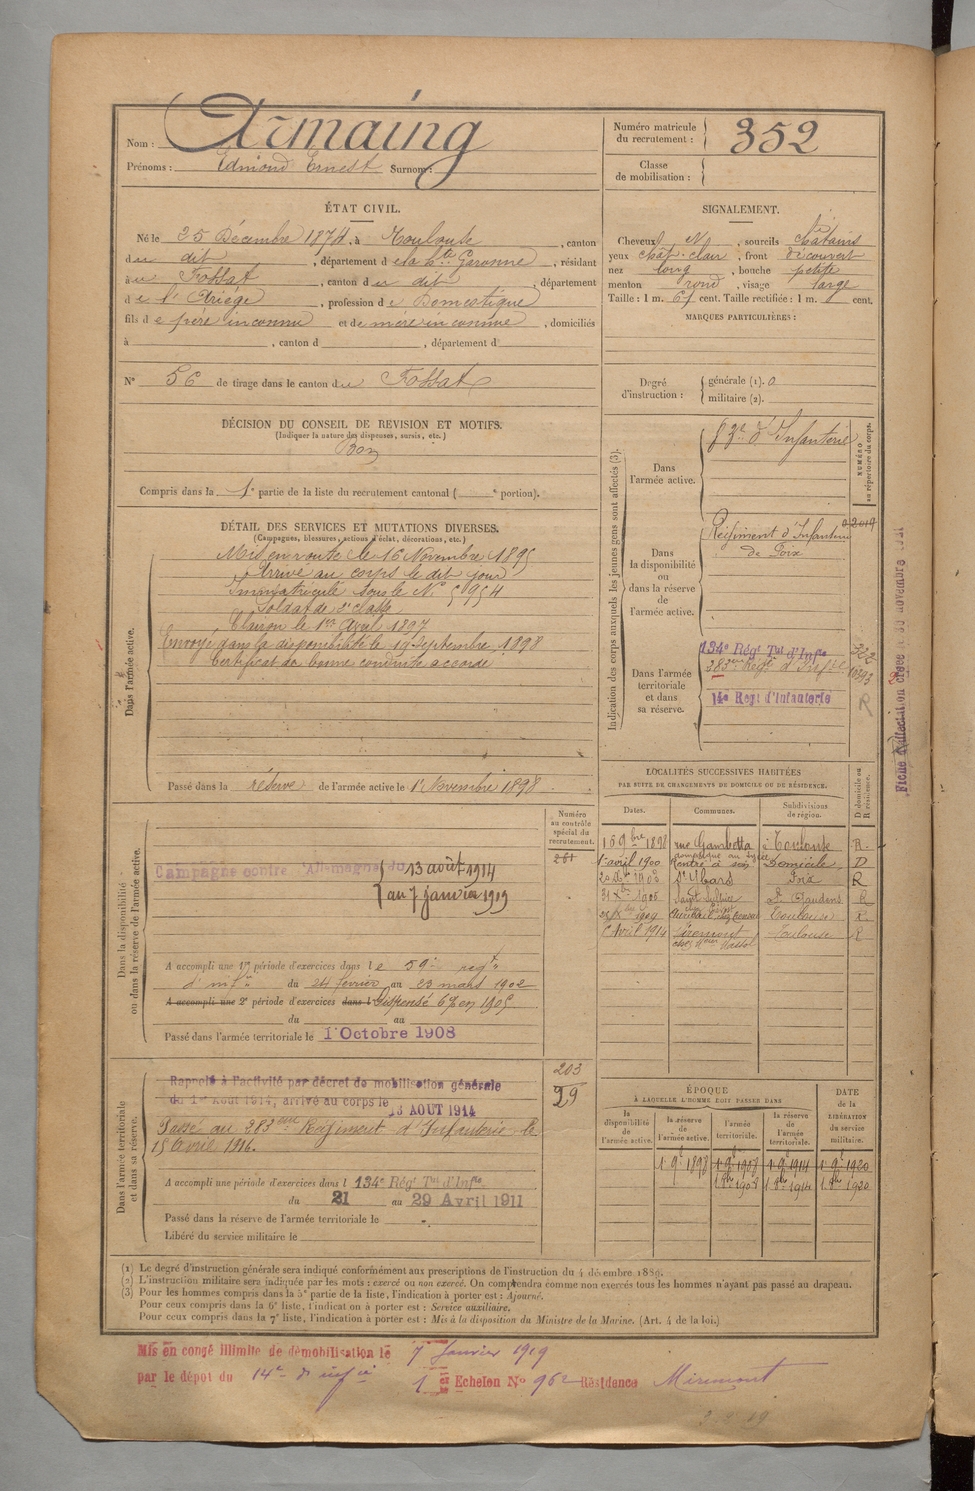 Nom : Armaing
Prénoms : Edmond Ernest Surnom :
Numéro matricule du recrutement : 352
Classe de mobilisation :
ÉTAT CIVIL.
Né le 25 Décembre 1874, à Toulouse, canton
du dit, département de la Hte Garonne, résidant
au Fossat, canton du dit, département
de l'Ariège, profession de Domestique
fils de père inconnu et de mère inconnue, domiciliés
à , canton d , département d
N° 56 de tirage dans le canton du Fossat
SIGNALEMENT.
Cheveux N, sourcils châtains
yeux chât. clair, front découvert
nez long, bouche petite
menton rond, visage large
Taille : 1 m. 67 cent. Taille rectifiée : 1 m. cent.
MARQUES PARTICULIÈRES :
Degré d'instruction :
générale (1). 0
militaire (2).
DÉCISION DU CONSEIL DE REVISION ET MOTIFS.
(Indiquer la nature des dispenses, sursis, etc.)
Bon
Compris dans la 1e partie de la liste du recrutement cantonal ( e portion).
DÉTAIL DES SERVICES ET MUTATIONS DIVERSES.
(Campagnes, blessures, actions d'éclat, décorations, etc.)
Dans l'armée active.
Mis en route le 16 Novembre 1895
Arrivé au corps le dit jour
Immatriculé sous le N° 5954
Soldat de 2e classe
Clairon le 1er Avril 1897
Envoyé dans la disponibilité le 19 Septembre 1898
Certificat de bonne conduite accordé
Passé dans la réserve de l'armée active le 1er Novembre 1898
Indication des corps auxquels les jeunes gens sont affectés (3).
NUMÉRO au répertoire du corps.
Dans l'armée active.
d'Infanterie
Dans la disponibilité ou dans la réserve de l'armée active.
Régiment d'Infanterie
de Foix
Dans l'armée territoriale et dans sa réserve.
134e Régt Tal d'Infie
383me Régt d'Infie
14e Regt d'Infanterie
R
LOCALITÉS SUCCESSIVES HABITÉES
PAR SUITE DE CHANGEMENTS DE DOMICILE OU DE RÉSIDENCE.
Dates. Communes. Subdivisions de région. D domicile ou R résidence.
16 9bre 1898 rue Gambetta à Toulouse R.
1er avril 1900 Rentré à son Domicile D
St Ybars Foix R
1906 St Gaudens R
1909 Toulouse R.
6 Avril 1914 Miremont Toulouse R
Numéro au contrôle spécial du recrutement.
261
Dans la disponibilité ou dans la réserve de l'armée active.
Campagne contre l'Allemagne du 13 août 1914
au 7 janvier 1919
A accompli une 1re période d'exercices dans le 59e regt
d'infie du 24 février au 23 mars 1902
A accompli une 2e période d'exercices dans l Dispensé en 1905
du au
Passé dans l'armée territoriale le 1er Octobre 1908
203
29
Dans l'armée territoriale et dans sa réserve.
Rappelé à l'activité par décret de mobilisation générale
du 1er Août 1914, arrivé au corps le 13 AOUT 1914
Passé au 383eme Régiment d'Infanterie le
15 Avril 1916.
A accompli une période d'exercices dans l 134e Régt Tal d'Infie
du 21 au 29 Avril 1911
Passé dans la réserve de l'armée territoriale le
Libéré du service militaire le
ÉPOQUE
À LAQUELLE L'HOMME DOIT PASSER DANS
DATE de la LIBÉRATION du service militaire.
la disponibilité de l'armée active. la réserve de l'armée active. l'armée territoriale. la réserve de l'armée territoriale.
1 9e 1898 1 9e 1908 1 9e 1914 1 9e 1920
1 8bre 1908 1 8bre 1914 1 8bre 1920
(1) Le degré d'instruction générale sera indiqué conformément aux prescriptions de l'instruction du 4 décembre 1889.
(2) L'instruction militaire sera indiquée par les mots : exercé ou non exercé. On comprendra comme non exercés tous les hommes n'ayant pas passé au drapeau.
(3) Pour les hommes compris dans la 5e partie de la liste, l'indication à porter est : Ajourné.
Pour ceux compris dans la 6e liste, l'indication à porter est : Service auxiliaire.
Pour ceux compris dans la 7e liste, l'indication à porter est : Mis à la disposition du Ministre de la Marine. (Art. 4 de la loi.)
Mis en congé illimité de démobilisation le 7 Janvier 1919
par le dépot du 14e d'infie 1er Echelon N° 962 Résidence Miremont